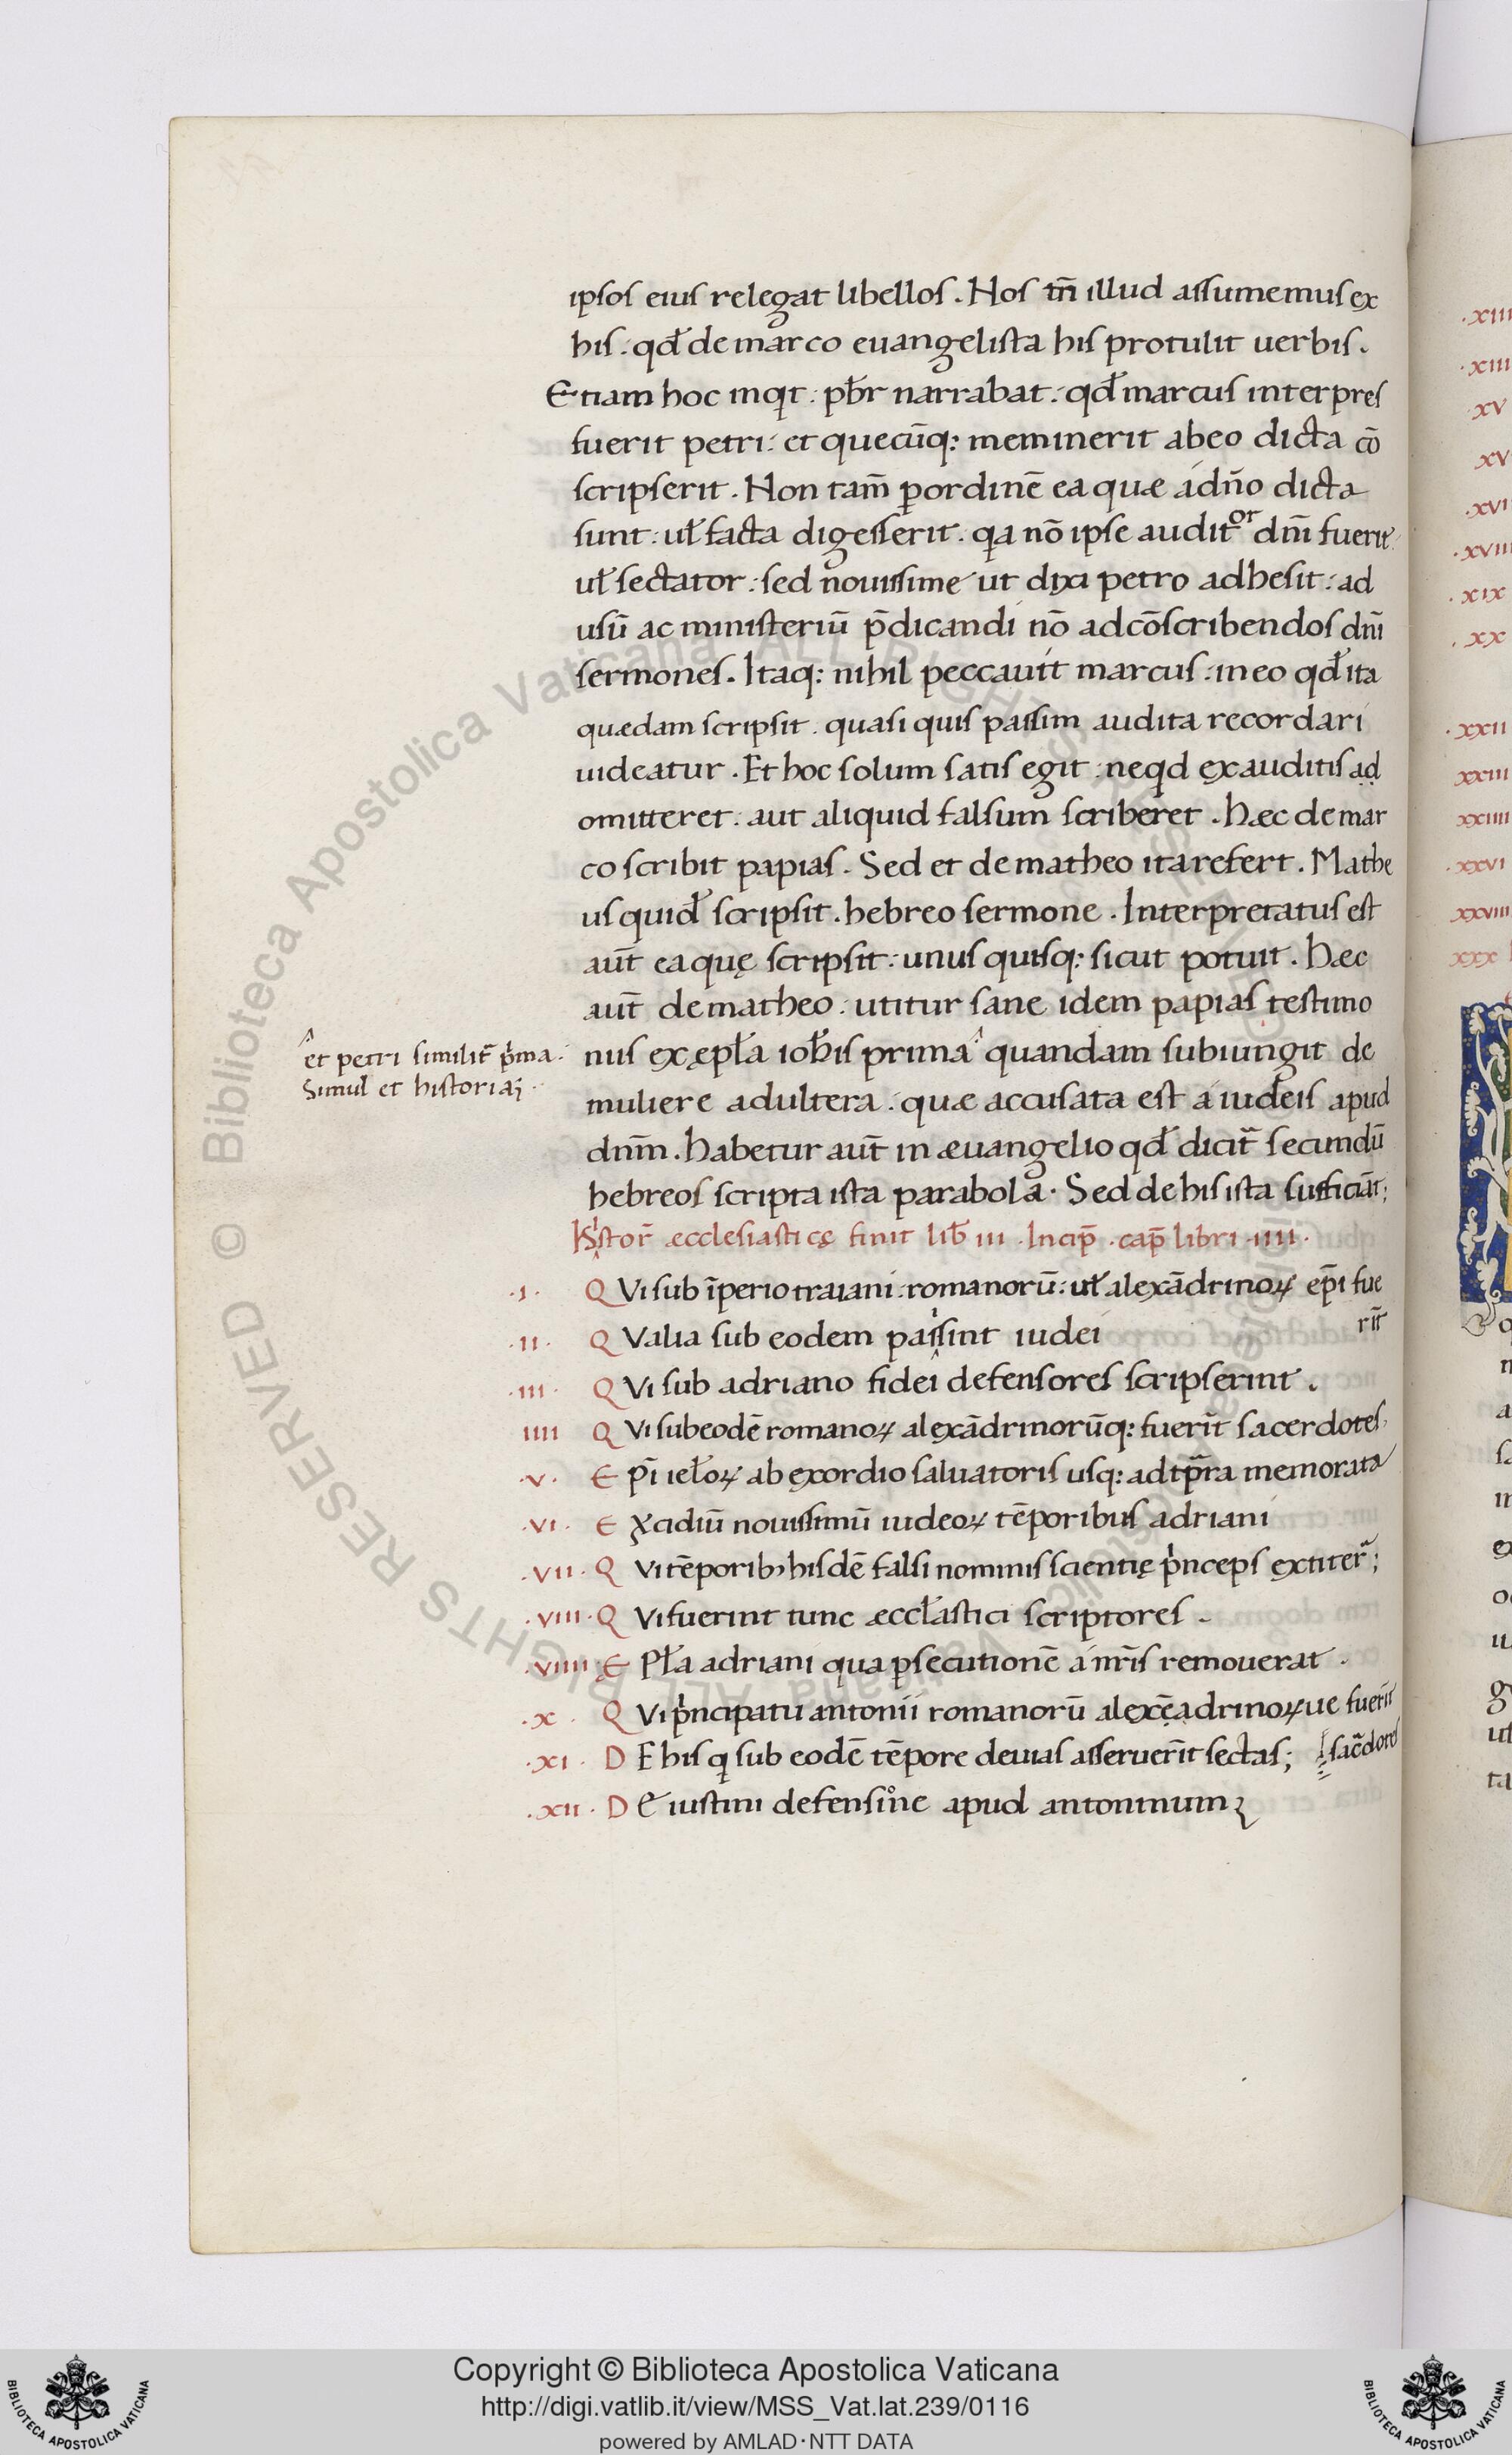 ipsos eius relegat libellos. Nos tn̄ illud assumemus ex
his. qđ de marco euangelista his protulit uerbis.
Etiam hoc inqt. pb̄r narrabat. qđ marcus interpres
fuerit petri. et quecūq; meminerit ab eo dicta cō
scripserit. Non tam̄ ꝑordinē ea quæ a dn̄o dicta
sunt. uł facta digesserit. qa nō ipse auditor dn̄i fuerit.
uł sectator. sed nouissime ut dixi petro adhesit. ad
usū ac ministeriū p̄dicandi nō ad cōscribendos dn̄i
sermones. Itaq; nihil peccauit marcus. in eo qđ ita
quædam scripsit. quasi quis passim audita recordari
uideatur. Et hoc solum satis egit. neqd ex auditis ad
omitteret. aut aliquid falsum scriberet. Hæc de mar
co scribit papias. Sed et de matheo ita refert. Mathe
us quiđ scripsit. hebreo sermone. Interpretatus est
aūt ea quę scripsit. unus quisq; sicut potuit. Hæc
aūt de matheo. utitur sane idem papias testimo
niis ex ępła iohīs prima quandam subiungit de
et petri similit̄ pͥma.
simul et historiā
muliere adultera. quæ accusata est a iudeis apud
dnm̄. Habetur aūt in æuangelio qđ dicit̄ secundū
hebreos scripta ista parabola. Sed de his ista sufficiāt;
Hystor̄ æcclesiasticę finit lib̄ iii. Incip̄. cap̄ libri .iiii.
.i. QVi sub īperio traiani. romanorū. uł alexādrinoꝝ ep̄i fue
rīt
.ii. QValia sub eodem passi sint iudei
.iii. QVi sub adriano fidei defensores scripserint.
iiii QVi sub eodē romanoꝝ alexādrinorūq; fuerīt sacerdotes.
.v. Epī ierłoꝝ ab exordio saluatoris usq; ad tp̄ra memorata
.vi. EXcidiū nouissimū iudeoꝝ tēporibus adriani
.vii. QVi tēporib; hisdē falsi nominis scientię pͥnceps extiter̄;
.viii. QVi fuerint tunc æccłastici scriptores.
.viiii. EPła adriani qua ꝑsecutionē a nr̄is remouerat.
.x. QVi pͥncipatu antonii romanorū alexęadrinoꝝue fuerīt
sac̄dotes
.xi. DE his q sub eodē tēpore deuias asseruerīt sectas;
.xii. DE iustini defensiͦne apud antoninum;
.xiii
.xiii
xv
xv
.xvi
.xviii
.xix
.xx
.xxii
xxiii
xxiiii
.xxvi
xxviii
xxx
© Biblioteca Apostolica Vaticana ALL RIGHTS RESERVED
© Biblioteca Apostolica Vaticana ALL RIGHTS RESERVED
Copyright © Biblioteca Apostolica Vaticana
http://digi.vatlib.it/view/MSS_Vat.lat.239/0116
powered by AMLAD·NTT DATA
BIBLIOTECA APOSTOLICA VATICANA
BIBLIOTECA APOSTOLICA VATICANA